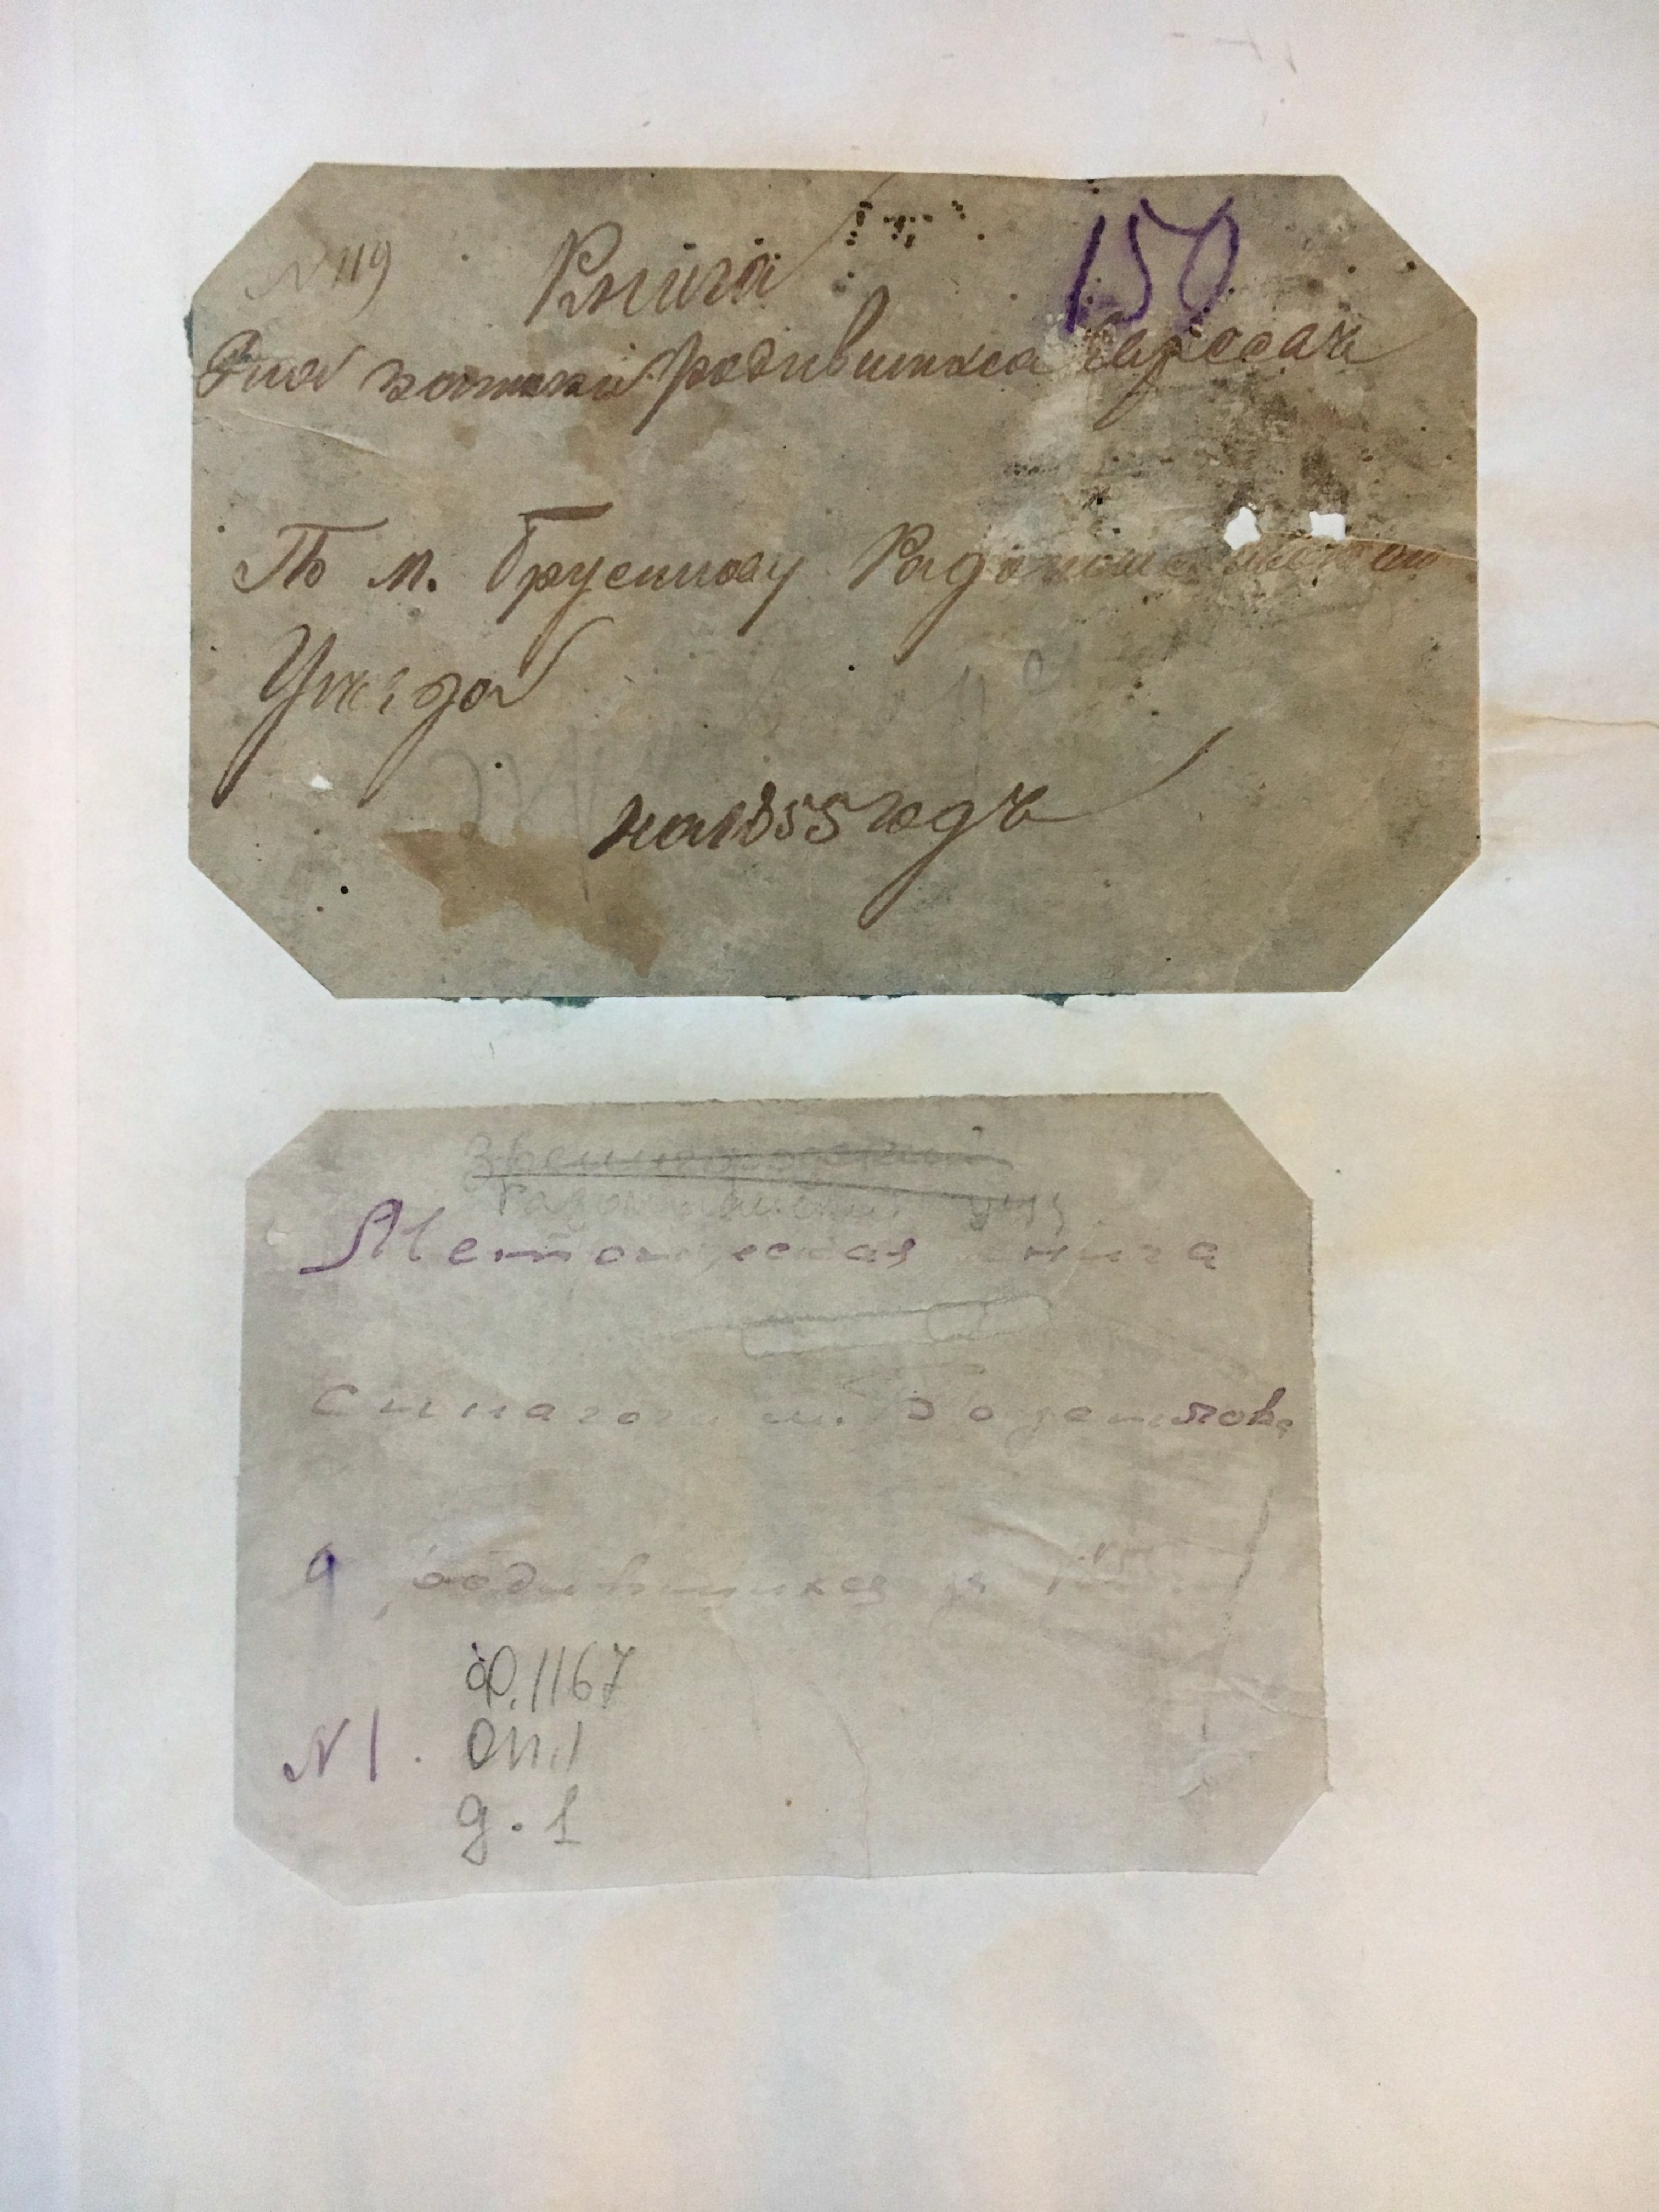 N 119 Книга 150
Для записки родившихся евреевъ
По м. Брусилову Радомысльскаго
Уѣзда
на 1855 годъ
Звенигородский
Радомысльский уезд
Метрическая книга
Синагоги м.
о родившихся
ф. 1167
N 1. оп. 1
д. 1